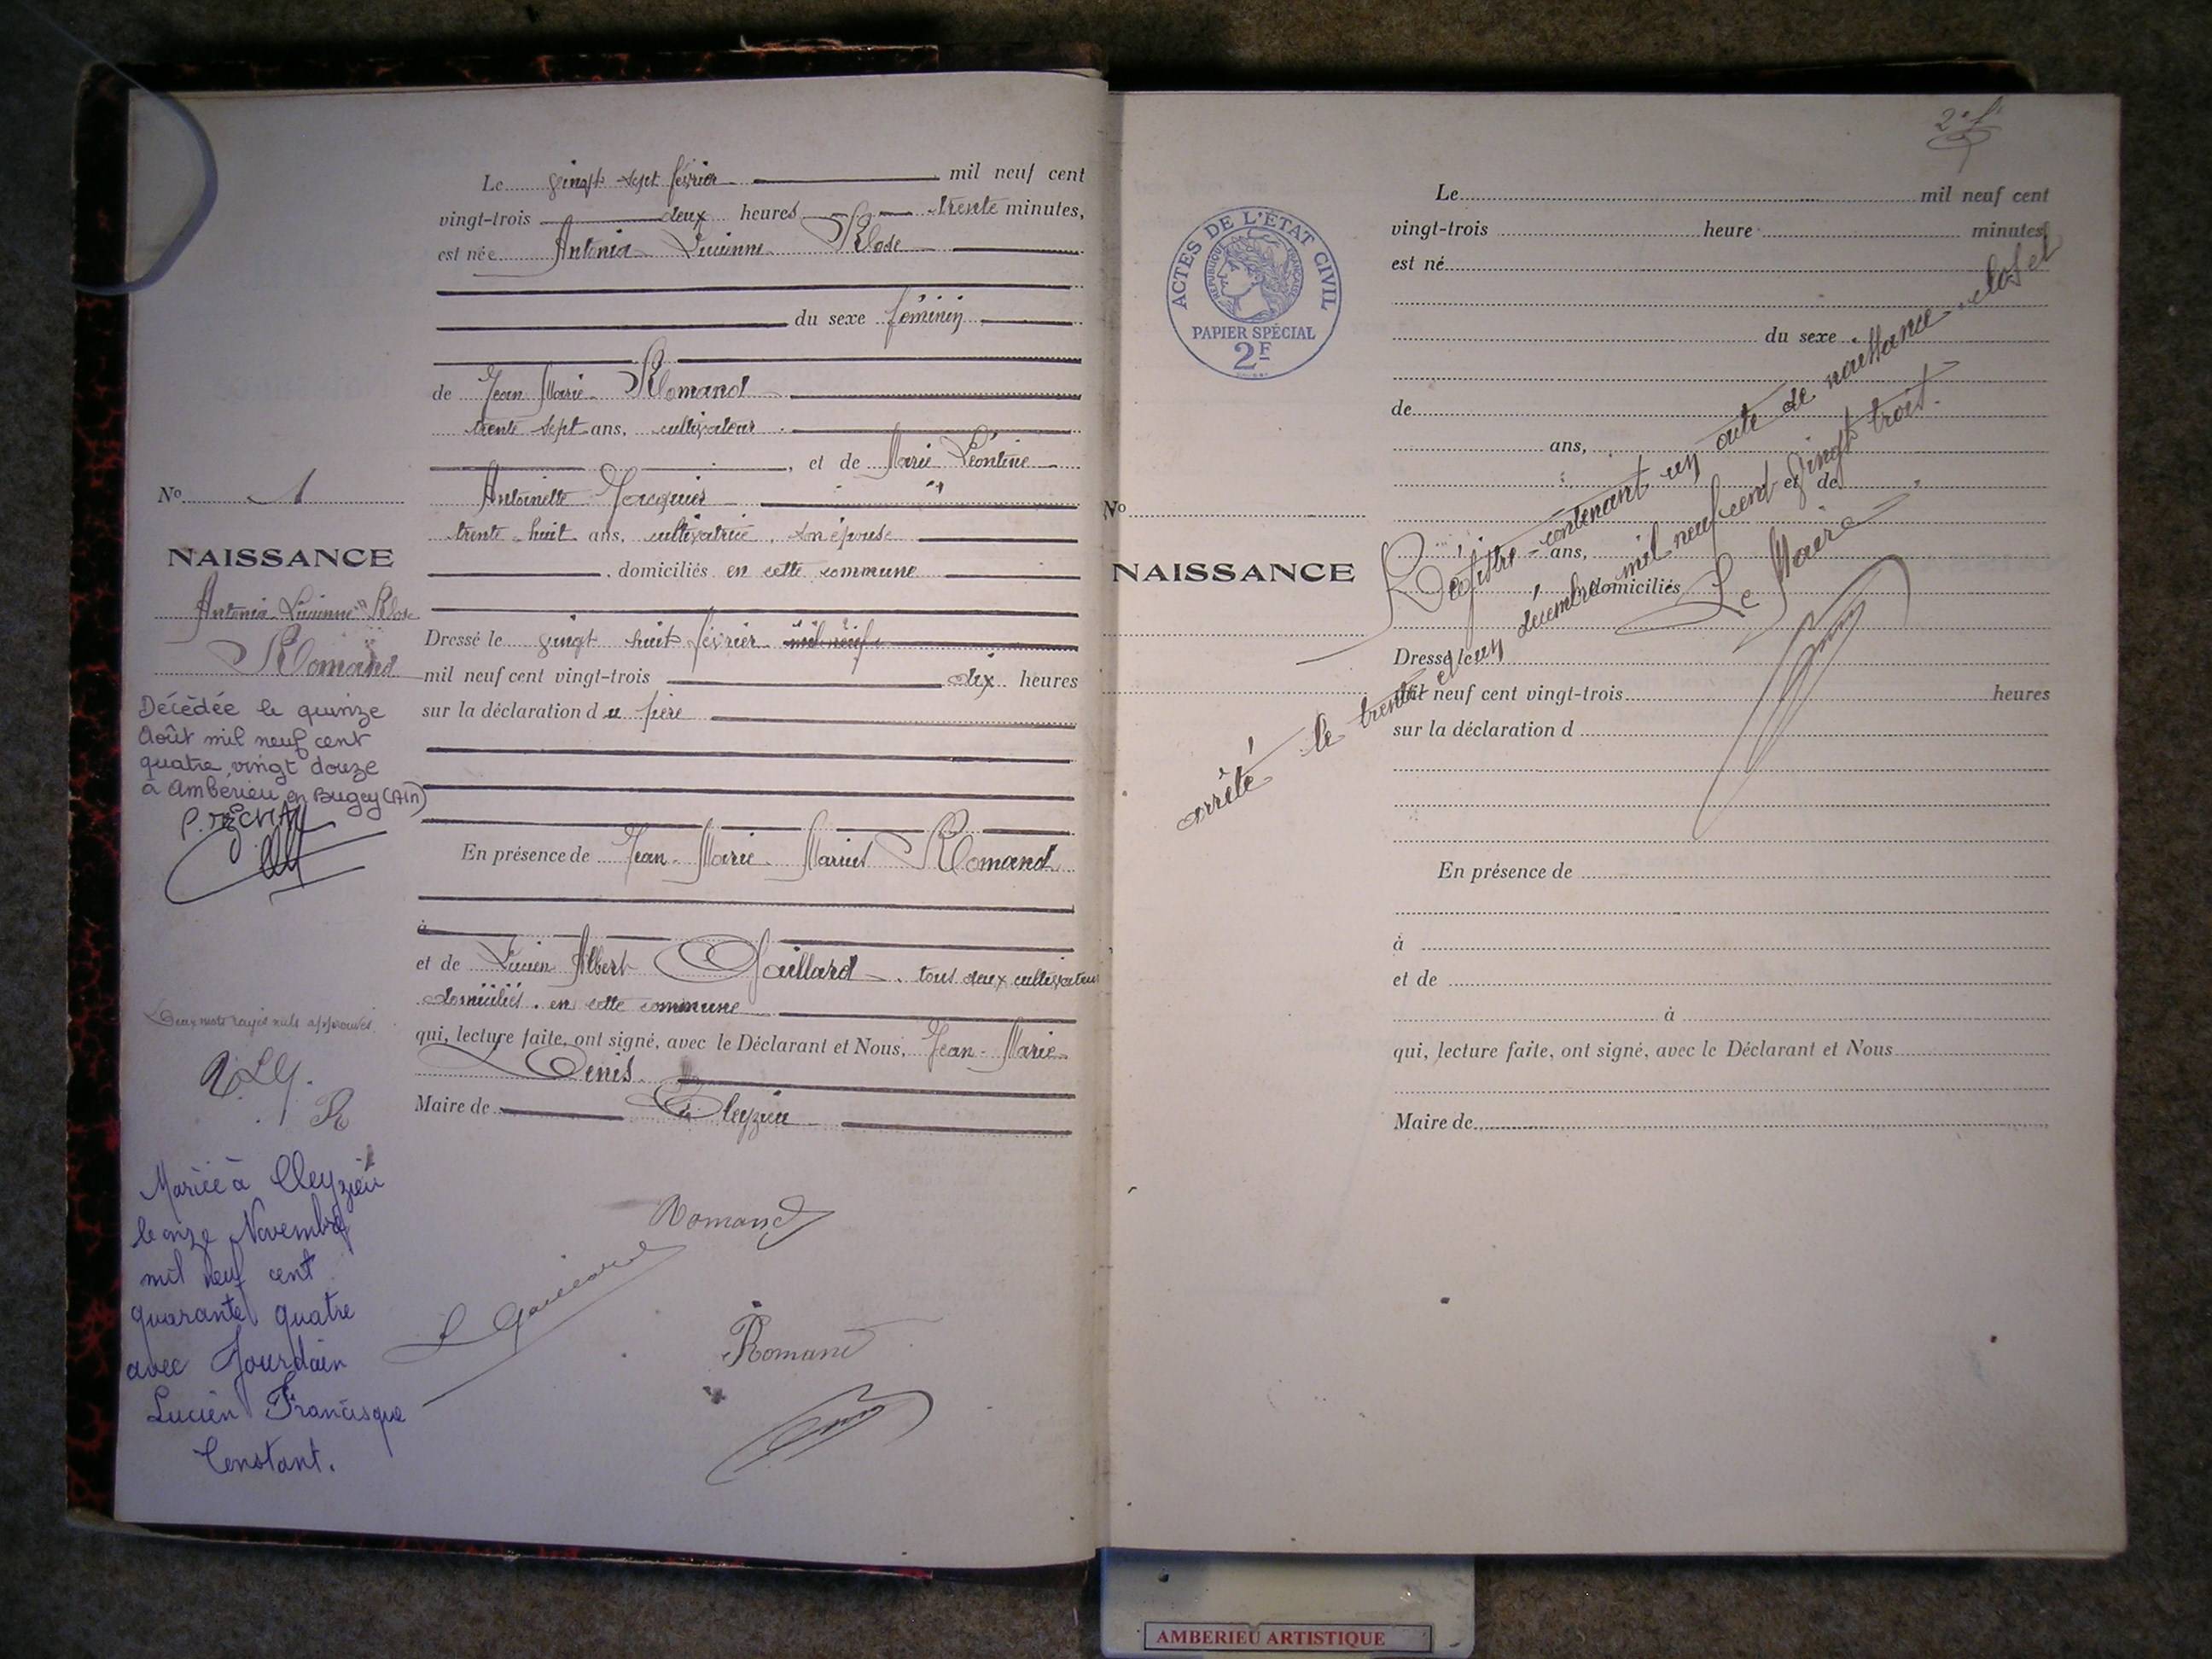 Le vingt sept février mil neuf cent
vingt-trois deux heures trente minutes,
est née Antonia Lucienne Rose
du sexe féminin
de Jean Marie Romand
trente sept ans, cultivateur
, et de Marie Léontine
Antoinette Jacquier
trente huit ans, cultivatrice, son épouse
, domiciliés en cette commune
Dressé le vingt huit février mil neuf
mil neuf cent vingt-trois dix heures
sur la déclaration du père
En présence de Jean-Marie Marius Romand
à
et de Lucien Albert Gaillard, tous deux cultivateurs
domiciliés en cette commune
qui, lecture faite, ont signé, avec le Déclarant et Nous, Jean-Marie
Denis
Maire de Cleyzieu
Romand
L Gaillard
Romand
No 1
NAISSANCE
Antonia Lucienne Rose
Romand
Décédée le quinze
Août mil neuf cent
quatre vingt douze
à Ambérieu en Bugey (Ain)
Deux mots rayés nuls approuvés.
R
Mariée à Cleyzieu
le onze Novembre
mil neuf cent
quarante quatre
avec Jourdain
Lucien Francisque
Constant.
2
ACTES DE L'ÉTAT CIVIL
RÉPUBLIQUE FRANÇAISE
PAPIER SPÉCIAL
2F
Le mil neuf cent
vingt-trois heure minutes
est né
du sexe
de
ans,
et de
ans,
domiciliés
Dressé le
mil neuf cent vingt-trois heures
sur la déclaration d
En présence de
à
et de
à
qui, lecture faite, ont signé, avec le Déclarant et Nous
Maire de
No
NAISSANCE
Registre contenant un acte de naissance clos et
arrêté le trente et un décembre mil neuf cent vingt trois.
Le Maire
AMBERIEU ARTISTIQUE